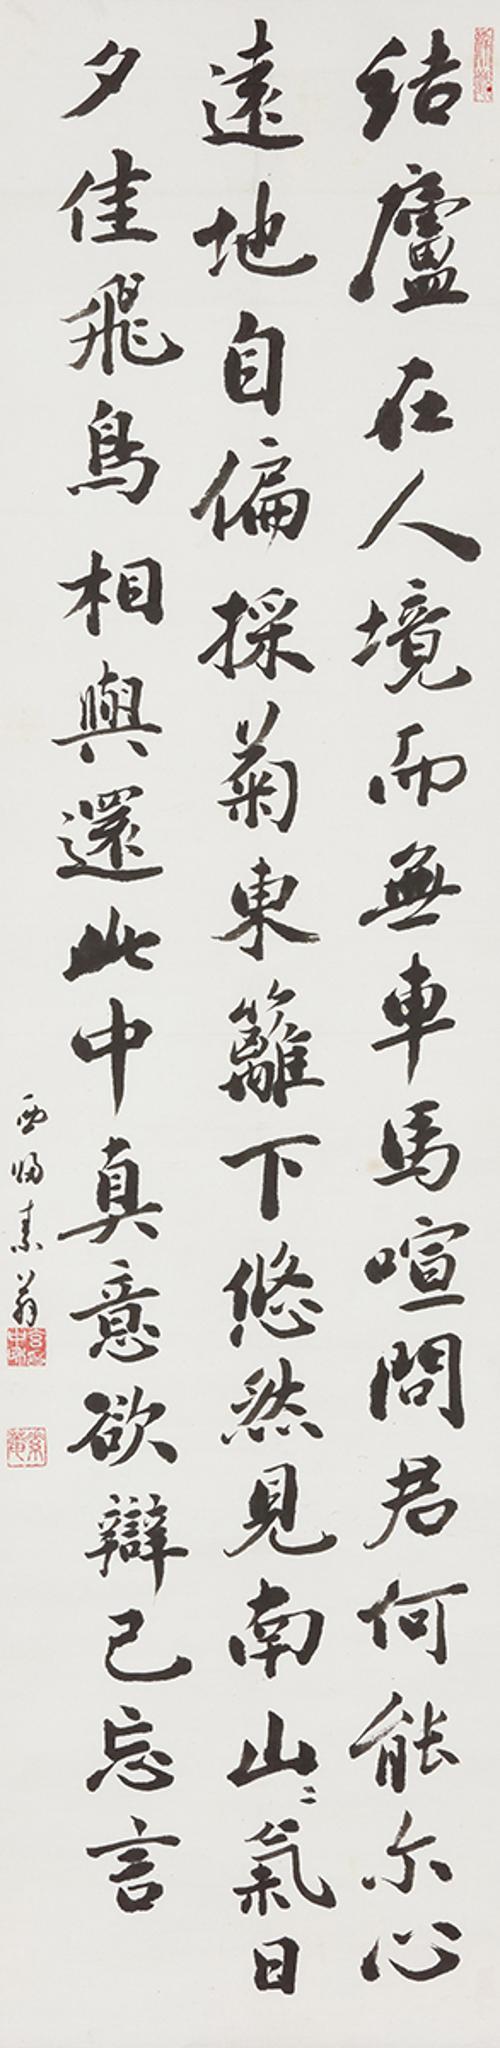 结廬在人境而無車馬喧問君何能尔心
遠地自偏採菊東籬下悠然見南山〻氣日
夕佳飛鳥相與還此中真意欲辯已忘言
素翁